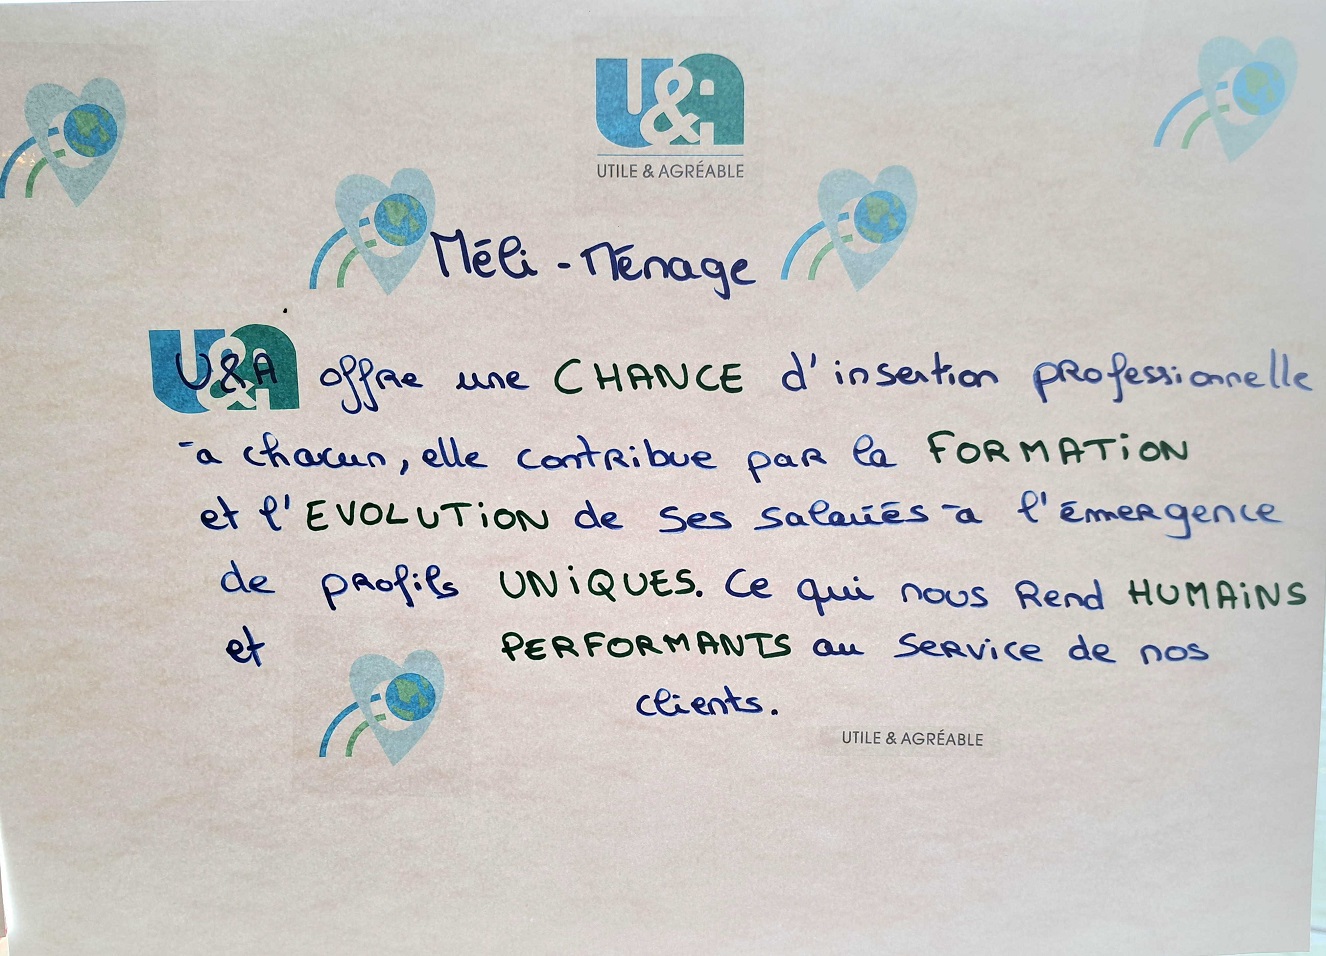 U&A
UTILE & AGRÉABLE
Méli-Ménage
U&A offre une CHANCE d'insertion professionnelle
à chacun, elle contribue par la FORMATiON
et l'EVOLUTiON de ses salariés à l'émergence
de profils UNiQUES. Ce qui nous Rend HUMAiNS
et PERFORMANTS au service de nos
clients.
UTILE & AGRÉABLE